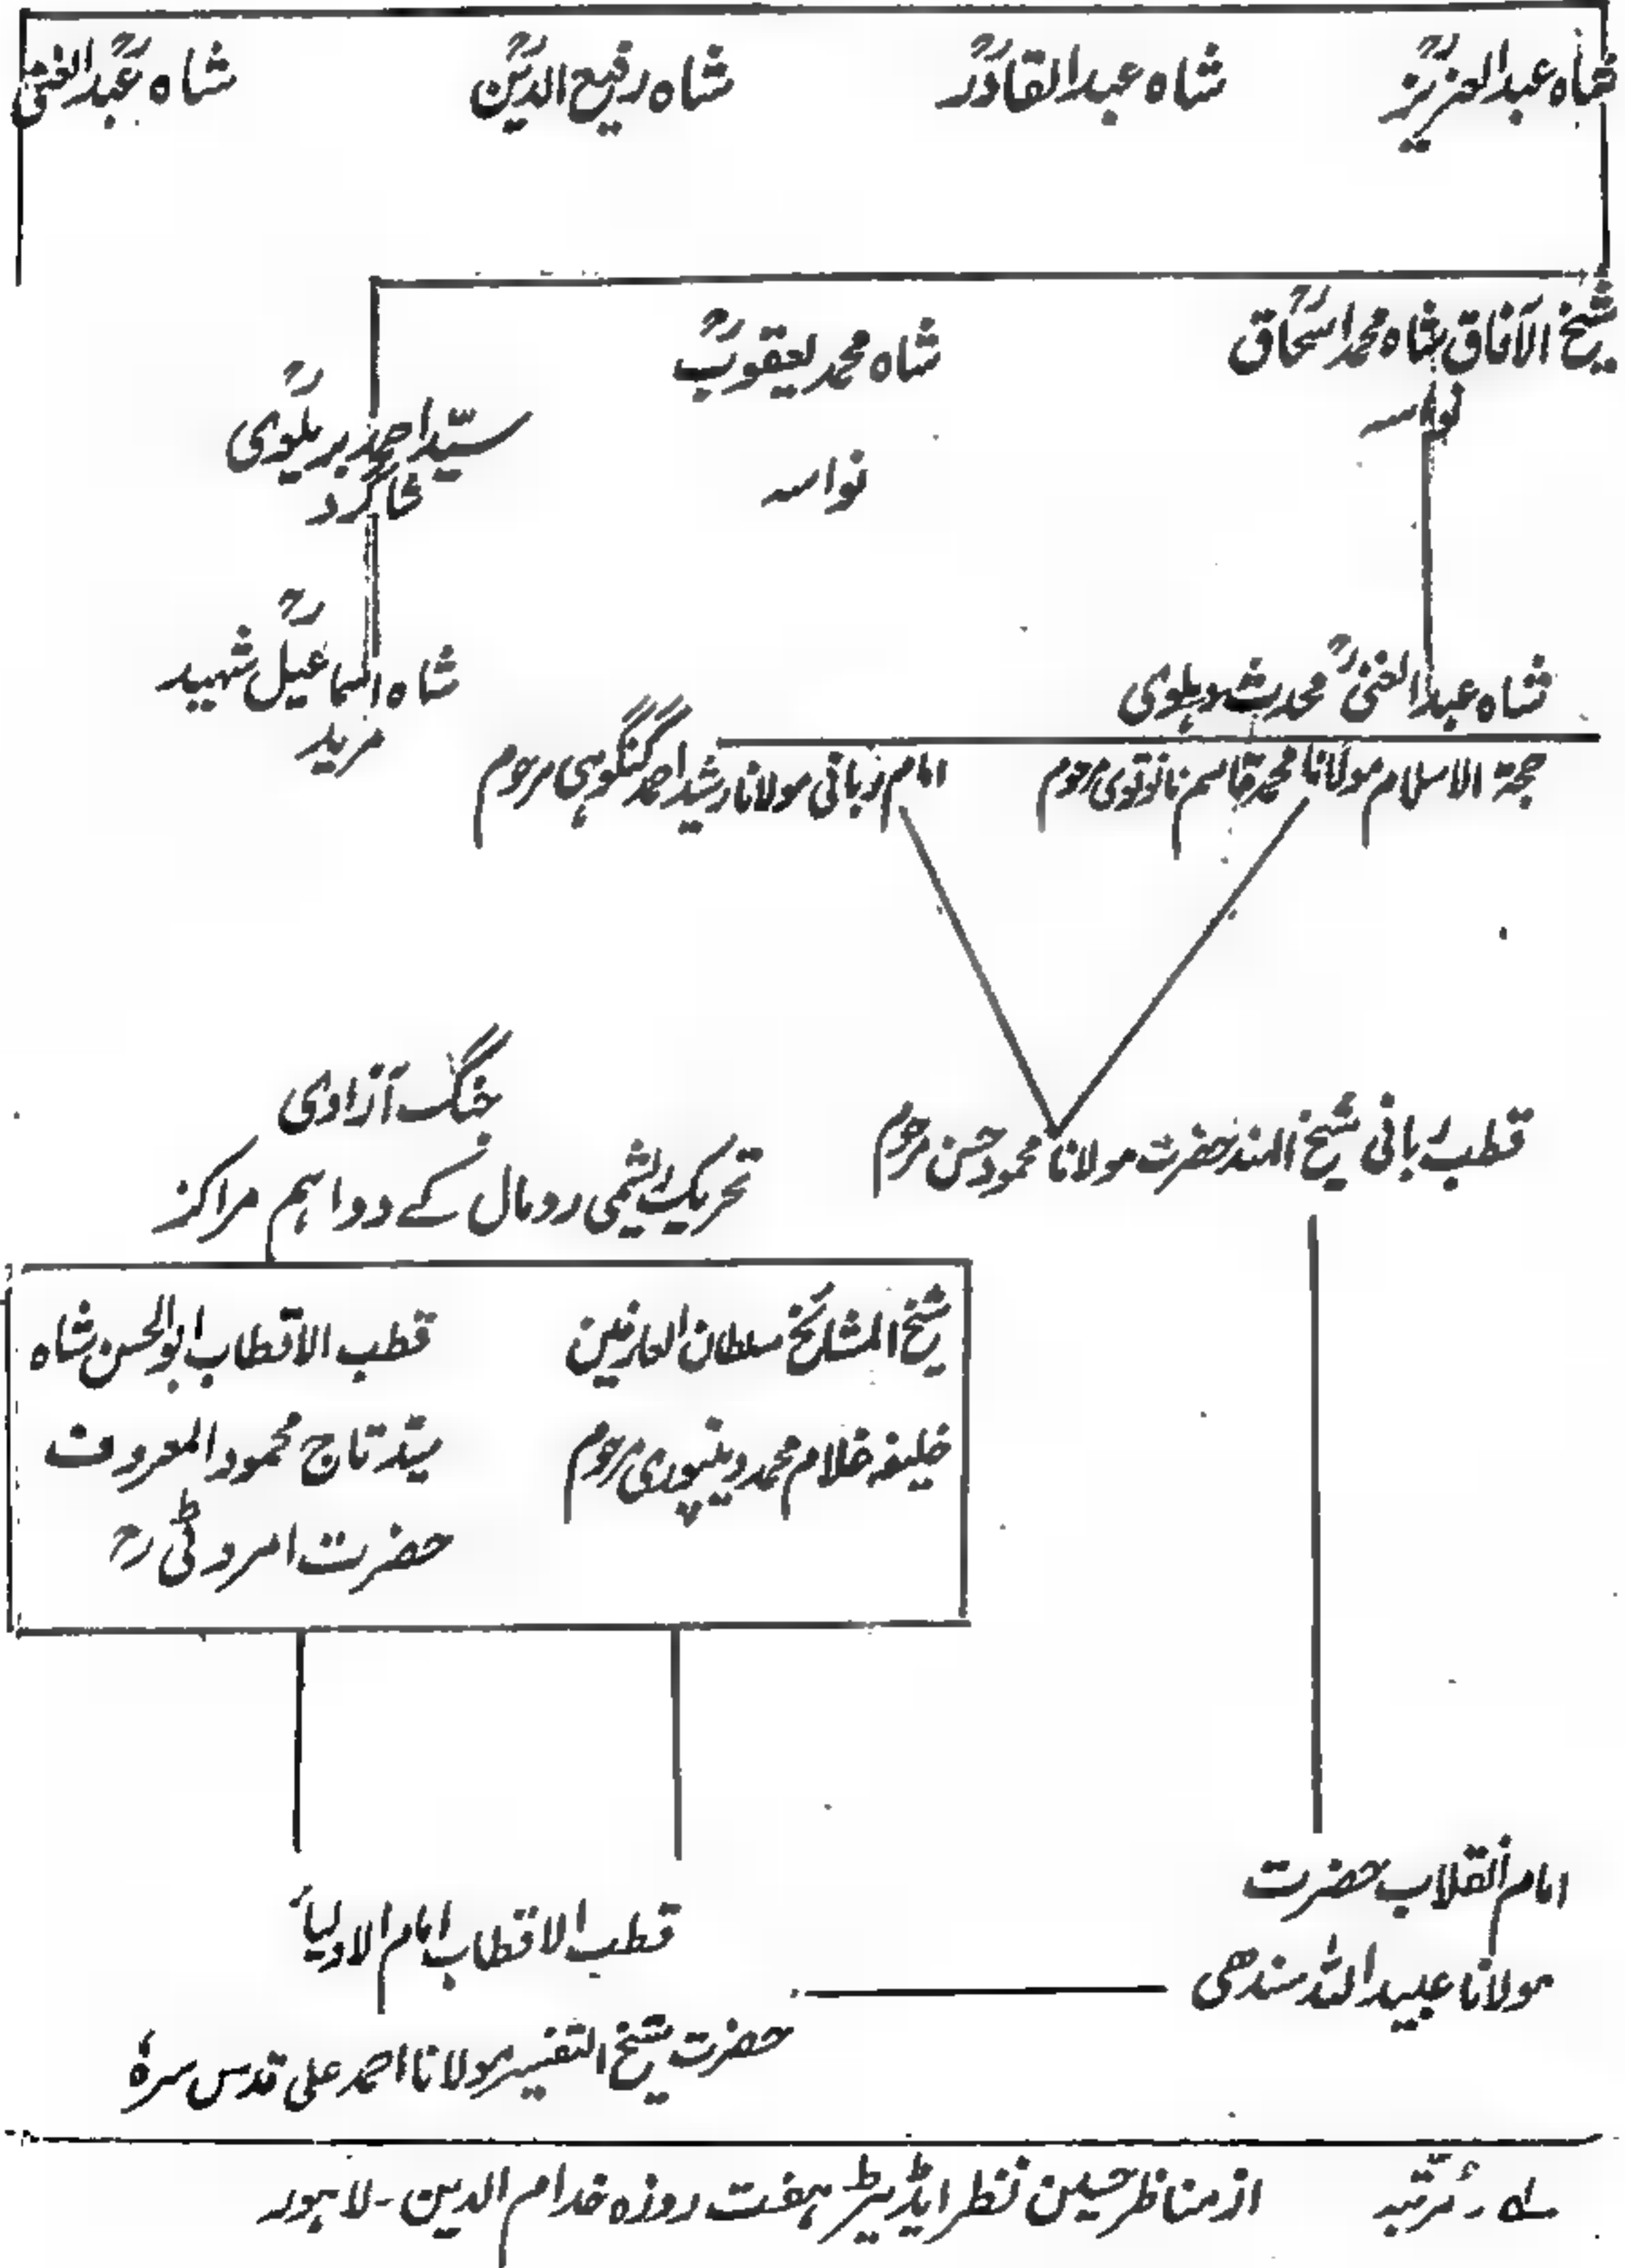 شاہ عبدالعزیزؒ شاہ عبدالقادرؒ شاہ رفیع الدینؒ شاہ عبدالغنیؒ
شیخ الآفاق شاہ محمد اسحاقؒ شاہ محمد یعقوبؒ سیّد احمد بریلویؒ
نواسہ نواسہ شاگرد
شاہ عبدالغنیؒ محدث دہلوی شاہ اسماعیلؒ شہید
مرید
حجۃ الاسلام مولانا محمد قاسم نانوتوی مرحوم امام ربانی مولانا رشید احمد گنگوہی مرحوم
قطب ربانی شیخ الہند حضرت مولانا محمود حسن مرحوم
جنگ آزادی
تحریک ریشمی رومال کے دو اہم مراکز
شیخ المشائخ سلطان العارفین
خلیفہ غلام محمد دینپوری مرحوم
قطب الاقطاب ابوالحسن شاہ
سیّد تاج محمود المعروف
حضرت امروٹی رح
امام انقلاب حضرت
مولانا عبیداللہ سندھی
قطب الاقطاب امام الاولیاء
حضرت شیخ التفسیر مولانا احمد علی قدس سرہٗ
مرتبہ از مناظر حسین نظر ایڈیٹر ہفت روزہ خدام الدین - لاہور